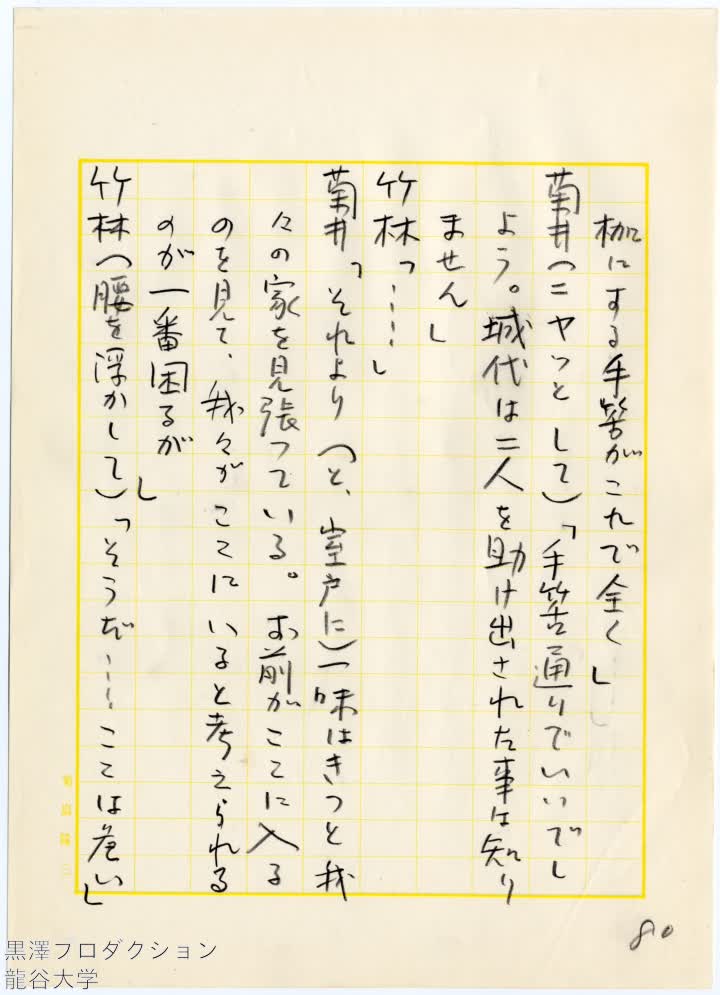 枷にする手筈がこれで全く」
菊井（ニヤッとして）「手筈通りでいいでし
よう。城代は二人を助け出された事は知り
ません」
竹林「……」
菊井「それより（と、室戸に）一味はきっと我
々の家を見張っている。お前がここに入る
のを見て、我々がここにいると考えられる
のが一番困るが」
竹林（腰を浮かして）「そうだ……ここは危い」
80
黒澤プロダクション
龍谷大学